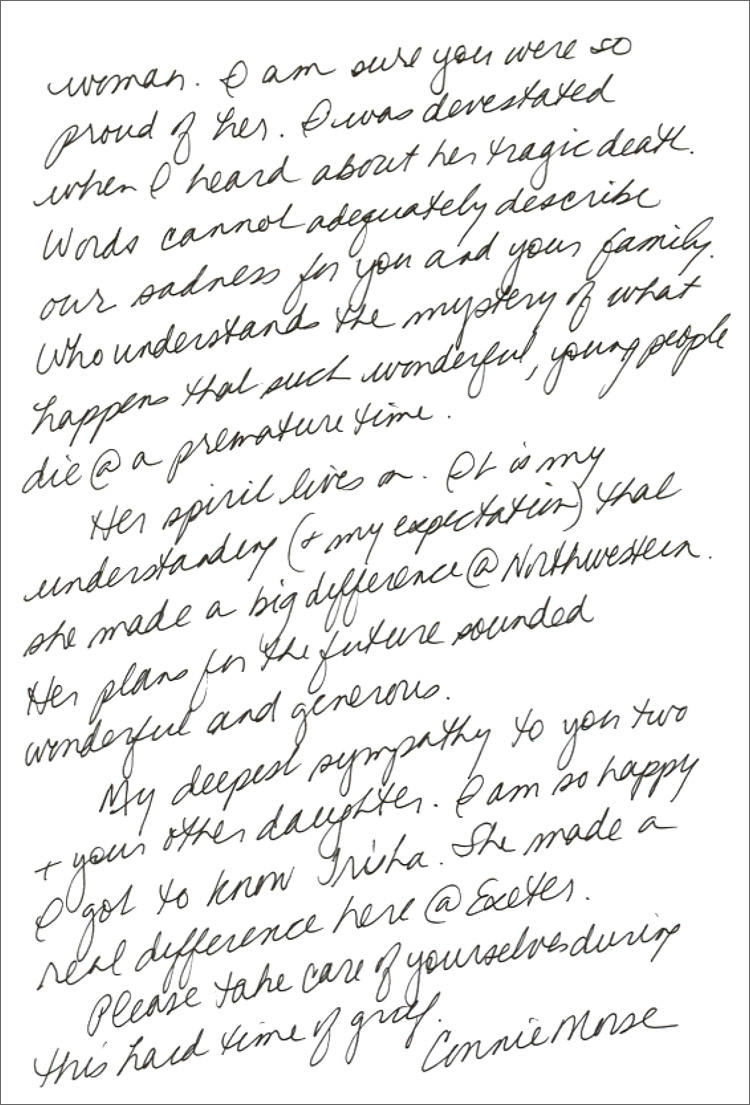 woman. I am sure you were so
proud of her. I was devestated
when I heard about her tragic death.
Words cannot adequately describe
our sadness for you and your family.
Who understands the mystery of what
happens that such wonderful, young people
die @ a premature time.
Her spirit lives on. It is my
understanding (+ my expectation) that
she made a big difference @ Northwestern.
Her plans for the future sounded
wonderful and generous.
My deepest sympathy to you two
+ your other daughter. I am so happy
I got to know Trisha. She made a
real difference here @ Exeter.
Please take care of yourselves during
this hard time of grief.
Connie Morse